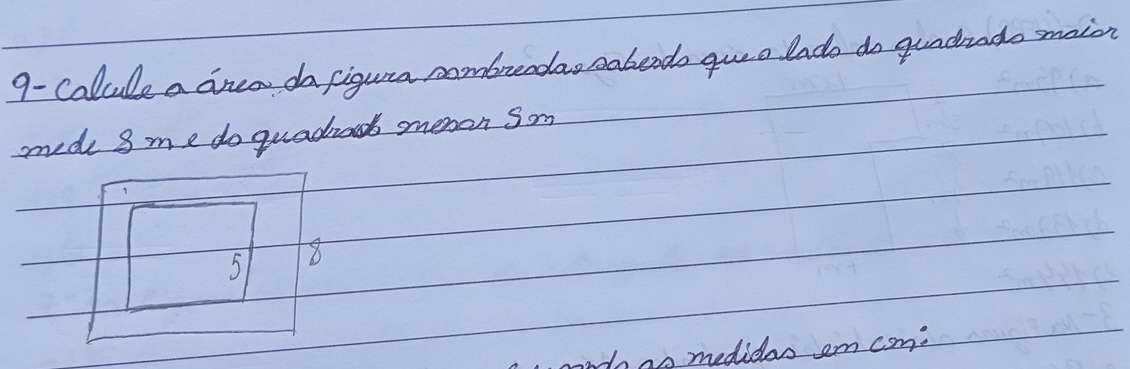 9- Calcule a área da figura sombreada, sabendo que o lado do quadrado maior
mede 8 m e do quadrado menor 5m
5
8
as medidas em cm: